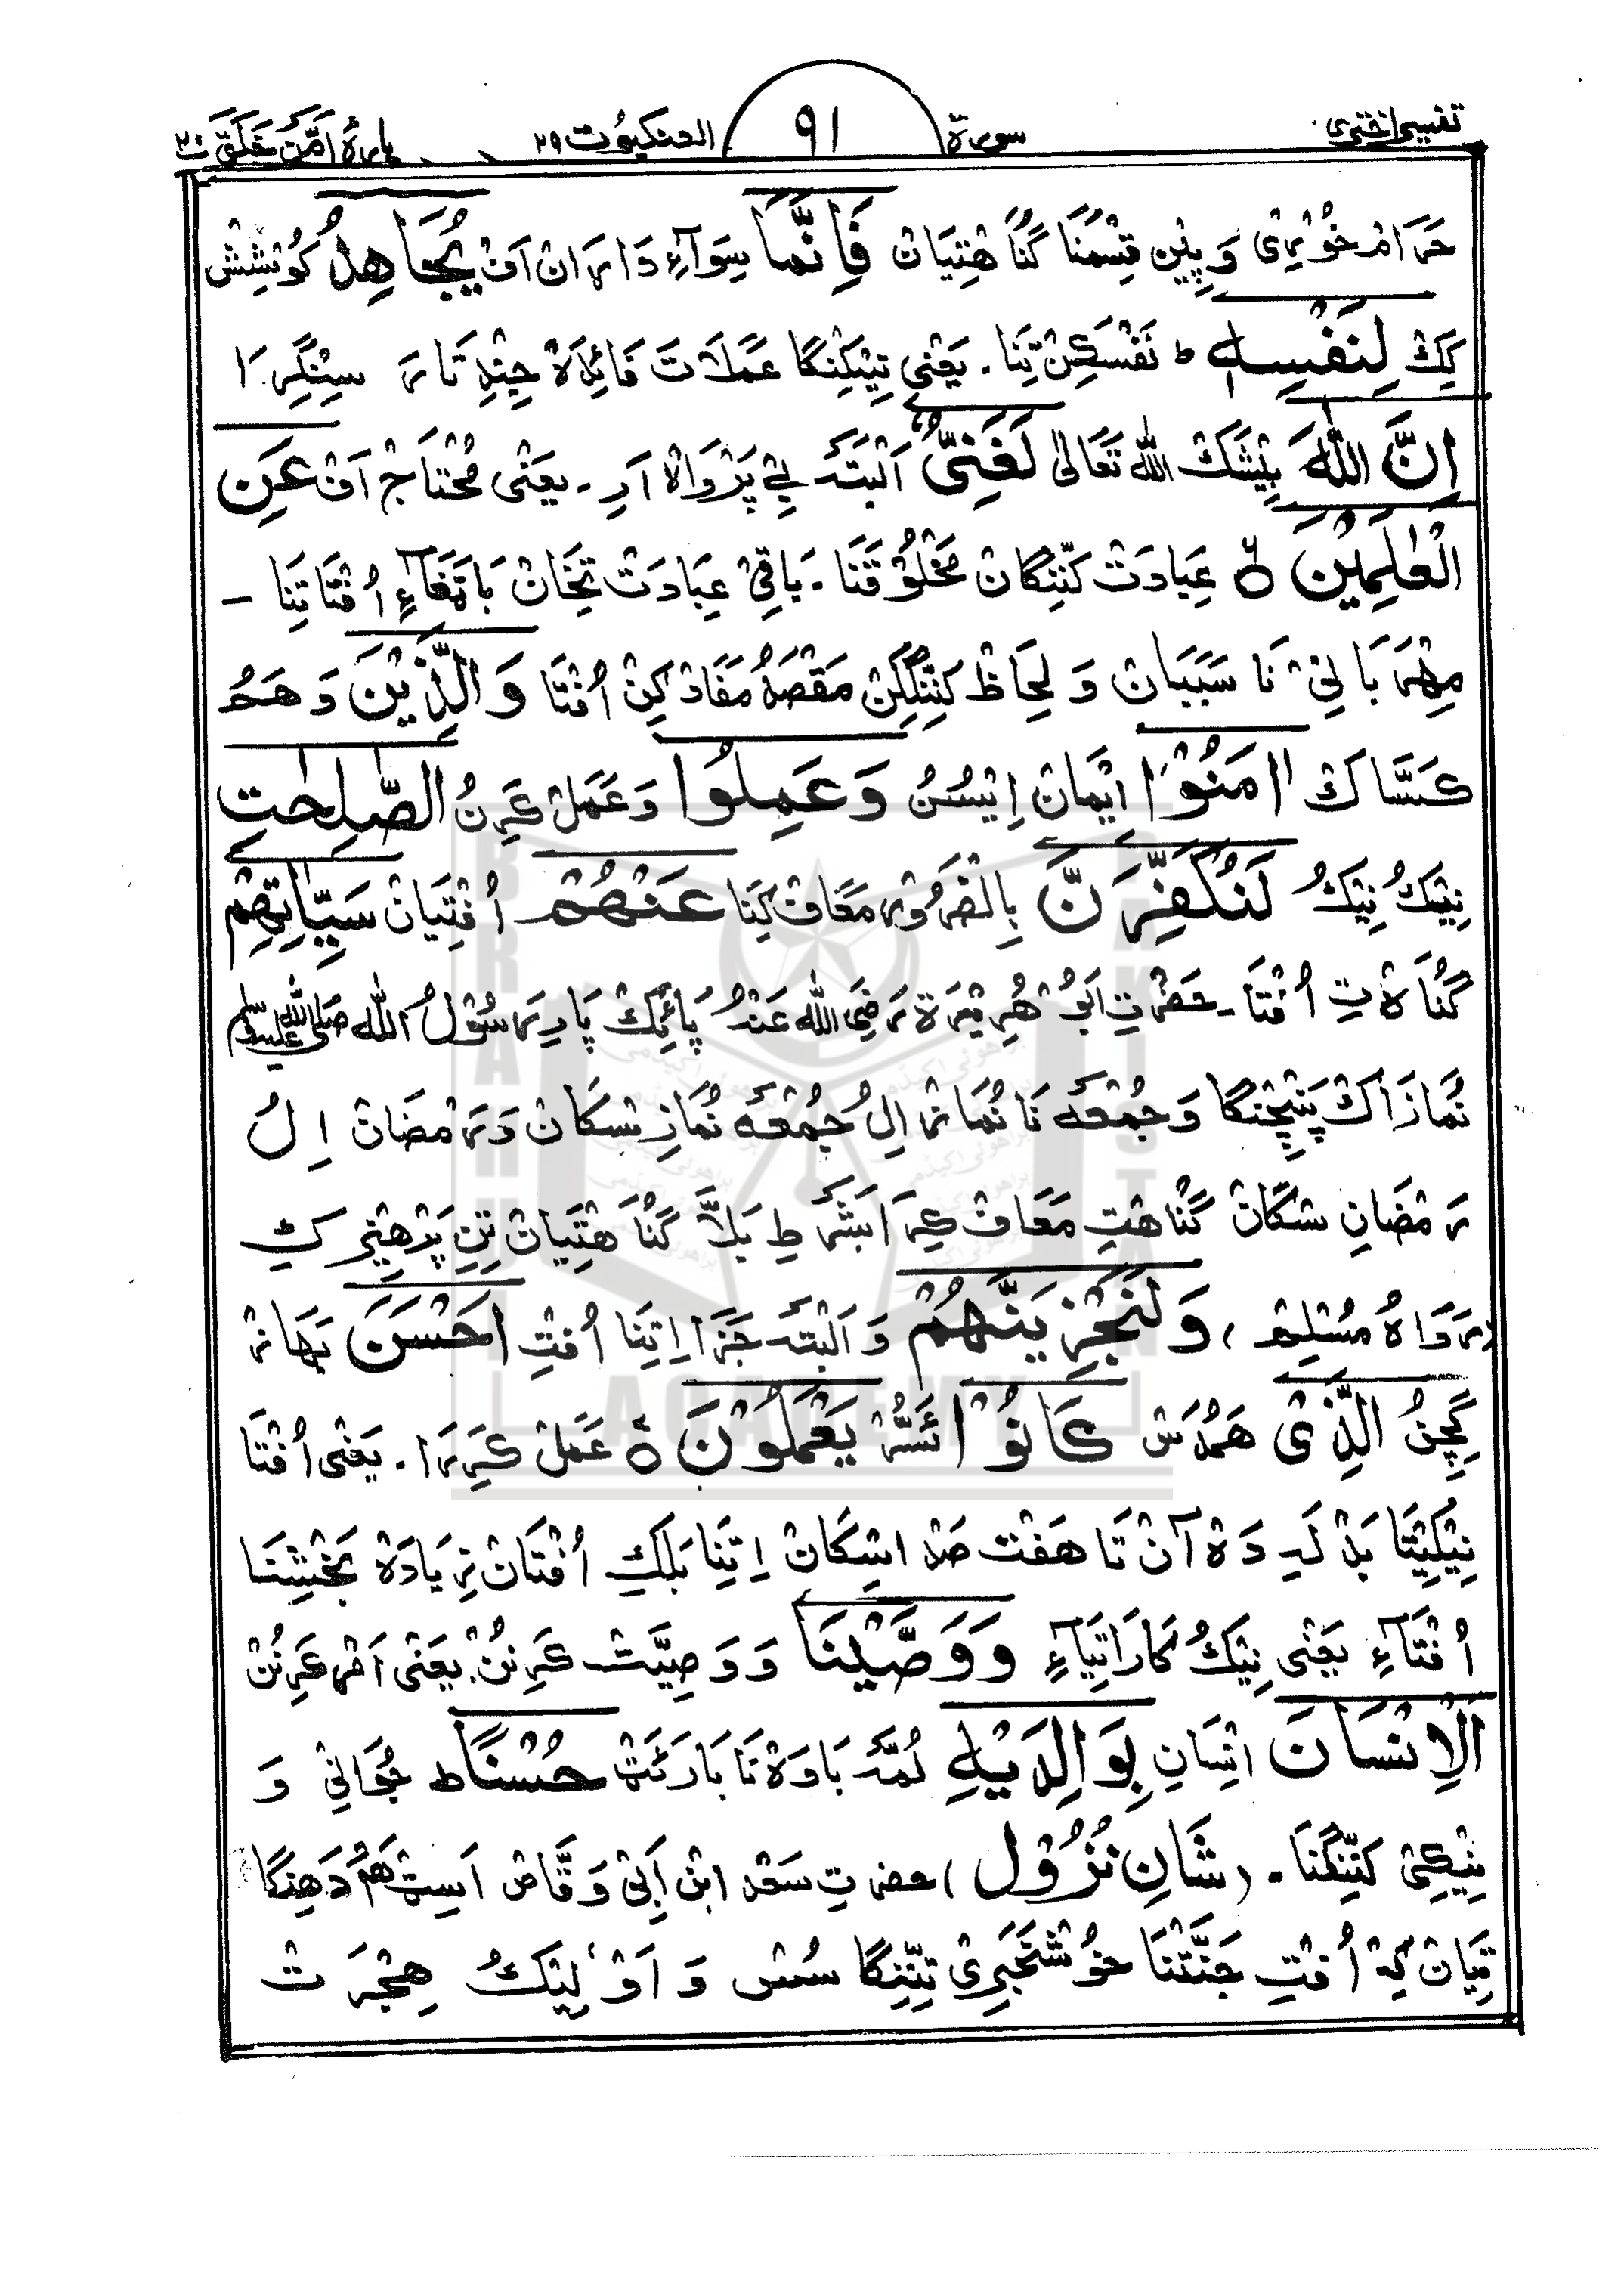 تفسیر اختری سورۃ ٩١ العنکبوت ٢٩ پارۂ اَمَّنْ خَلَقَ ٢٠
حَرَام خُوْرِیْ وَ پِیْن قِسْمْنَا گُنَاھْتِیَانْ فَاِنَّمَا سِوَآءِ دَارَانْ اَفْ یُجَاھِدُ کُوْشِشْ
کِکْ لِنَفْسِہٖ ط نَفْسَکِنْ تِنَا۔ یَعْنِیْ نِیْکِنْگَا عَمَلَاتَ فَائِدَہْ جِنْدِ تَا رَ سِیْنْگِرَا
اِنَّ اللّٰہَ بِیْشَکْ اللّٰہ تَعَالٰی لَغَنِیٌّ اَلْبَتَہ بے پَرْوَاہْ اَرِ۔ یَعْنِیْ مُحْتَاجْ اَفْ عَنِ
الْعٰلَمِیْنَ ٥ عِبَادَتْ کَنِّنْگَانْ مَخْلُوْقْنَا۔ بَاقِیْ عِبَادَتْ تِخَانْ بَاتَقَآءِ اُفْتَا تِنَا ۔
مِھْرَبَانِیْ نَا سَبَبَانْ وَ لِحَاظْ کَنِّنْگِکِنْ مَقْصَدُ مَفَادْ کِنْ اُفْتَا وَالَّذِیْنَ وَ ھَمُ
کَسَّاکْ اٰمَنُوْا اِیْمَانْ اِیْسُنُ وَعَمِلُوا وَ عَمَلْ کَرِنُ الصّٰلِحٰتِ
نِیْکُ نِیْکُ لَنُکَفِّرَنَّ بِالضَّرُوْر مَعَافْ کِنَا عَنْھُمْ اُفْتِیَانْ سَیِّاٰتِھِمْ
گُنَاہْ تِ اُفْتَا۔ حضرتِ اَبُوْ ھُرَیْرَۃ رَضِیَ اللّٰہ عَنْہُ پَائِکْ پَارِ رَسُوْلُ اللّٰہ صَلَّی اللّٰہ عَلَیْہِ وَسَلَّم
نُمَازَاکْ پَنْچِنْگَا وَ جُمْعَہ نَا نُمَازْ اِلُ جُمْعَہ نُمَازِ سْکَانْ وَ رَمْضَانْ اِ لُ
رَمْضَانِ سْکَانْ گُنَاھْتِ مَعَافْ کِرَ اَبَشَرْطِ بَلَّا گُنَاھْتِیَانْ تِنِ پَرْھِیْزِ کِ
(رَوَاہُ مُسْلِم) وَلَنَجْزِیَنَّھُمْ وَ اَلْبَتَہ جَزَا اِتِنَا اُفْتِ اَحْسَنَ بَھَازْ
الَّذِیْ ھَمْدُسْ کَانُوْا اَسُّرْ یَعْمَلُوْنَ ٥ عَمَلْ کَرِرَا۔ یَعْنِیْ اُفْتَا
نِیْکِیْتَا بَدْلَہ دَہْ آنْ تَا ھَفْت صَدْ اسْکَانْ اِتِنَا بَلْکِ اُفْتَانْ زِیَادَہْ بَخْشِنَا
اُفْتَآءِ یَعْنِیْ نِیْکُ کَارَاتِیَآءِ وَوَصَّیْنَا وَ وَصِیَّتْ کَرِنُنْ یَعْنِیْ اَمْر کَرِنُنْ
الْاِنْسَانَ اِنْسَانِ بِوَالِدَیْہِ لُمَّہ بَاوَہْ نَا بَارَٹَتْ حُسْنًا ط جُوَانِیْ وَ
نِیْکِیْ کَنِّنْگَنَا۔ (شَانِ نُزُوْل) حضرتِ سَعْد ابْنْ اَبِیْ وَقَّاصْ اَسِٹْ ھَمْ دَھِنْگَا
تِیَانْ کِہْ اُفْتِ جَنَّتْنَا خُوْشْخَبَرِیْ تِنِّنْگَا سُسْ وَ اَوْلِیْکُ ھِجْرَتْ